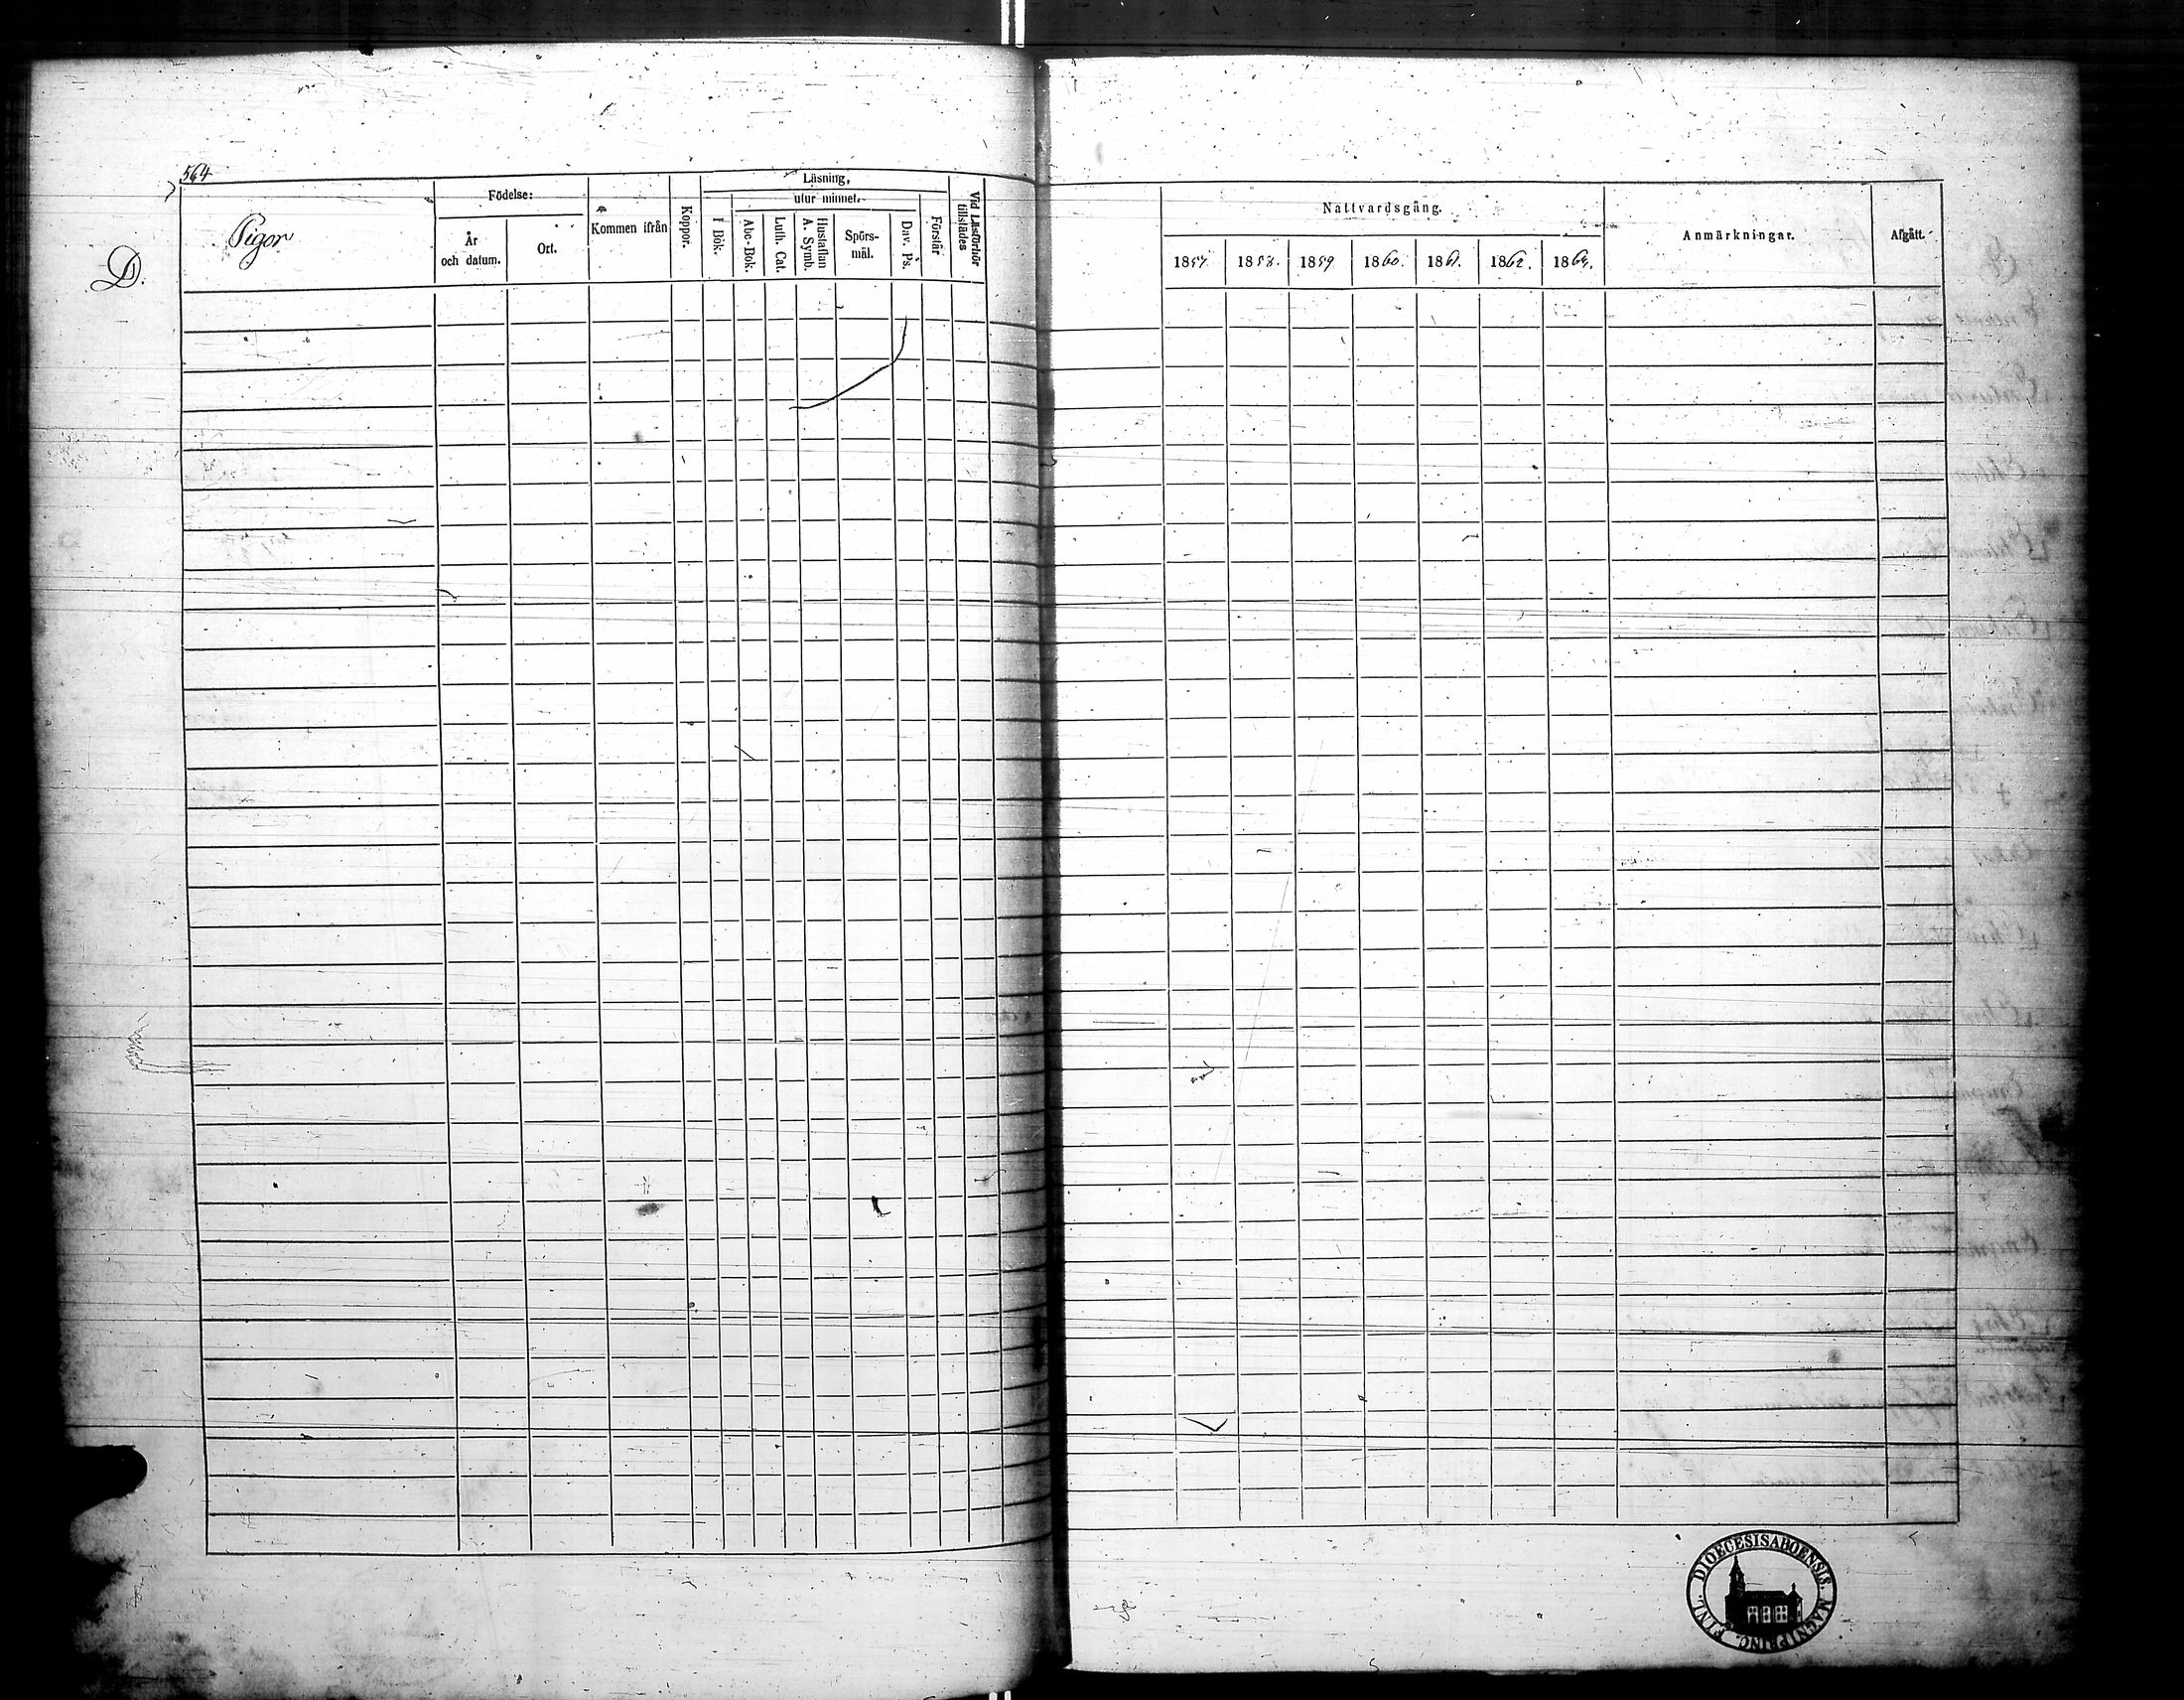 564
D.
Pigor
Födelse:
År
och datum.
Ort.
Kommen ifrån
Koppor.
Läsning,
utur minnet.
I Bok.
Abc-Bok.
Luth. Cat.
Hustaflan
A. Symb.
Spörs-
mål.
Dav. Ps.
Förstår
Vid Läsförhör
tillstädes
Nattvardsgång.
1857.
1858.
1859
1860.
1861.
1862.
1863.
Anmärkningar.
Afgått.
DIOECESIS ABOENSIS. MAGNI PRINC. FINL.